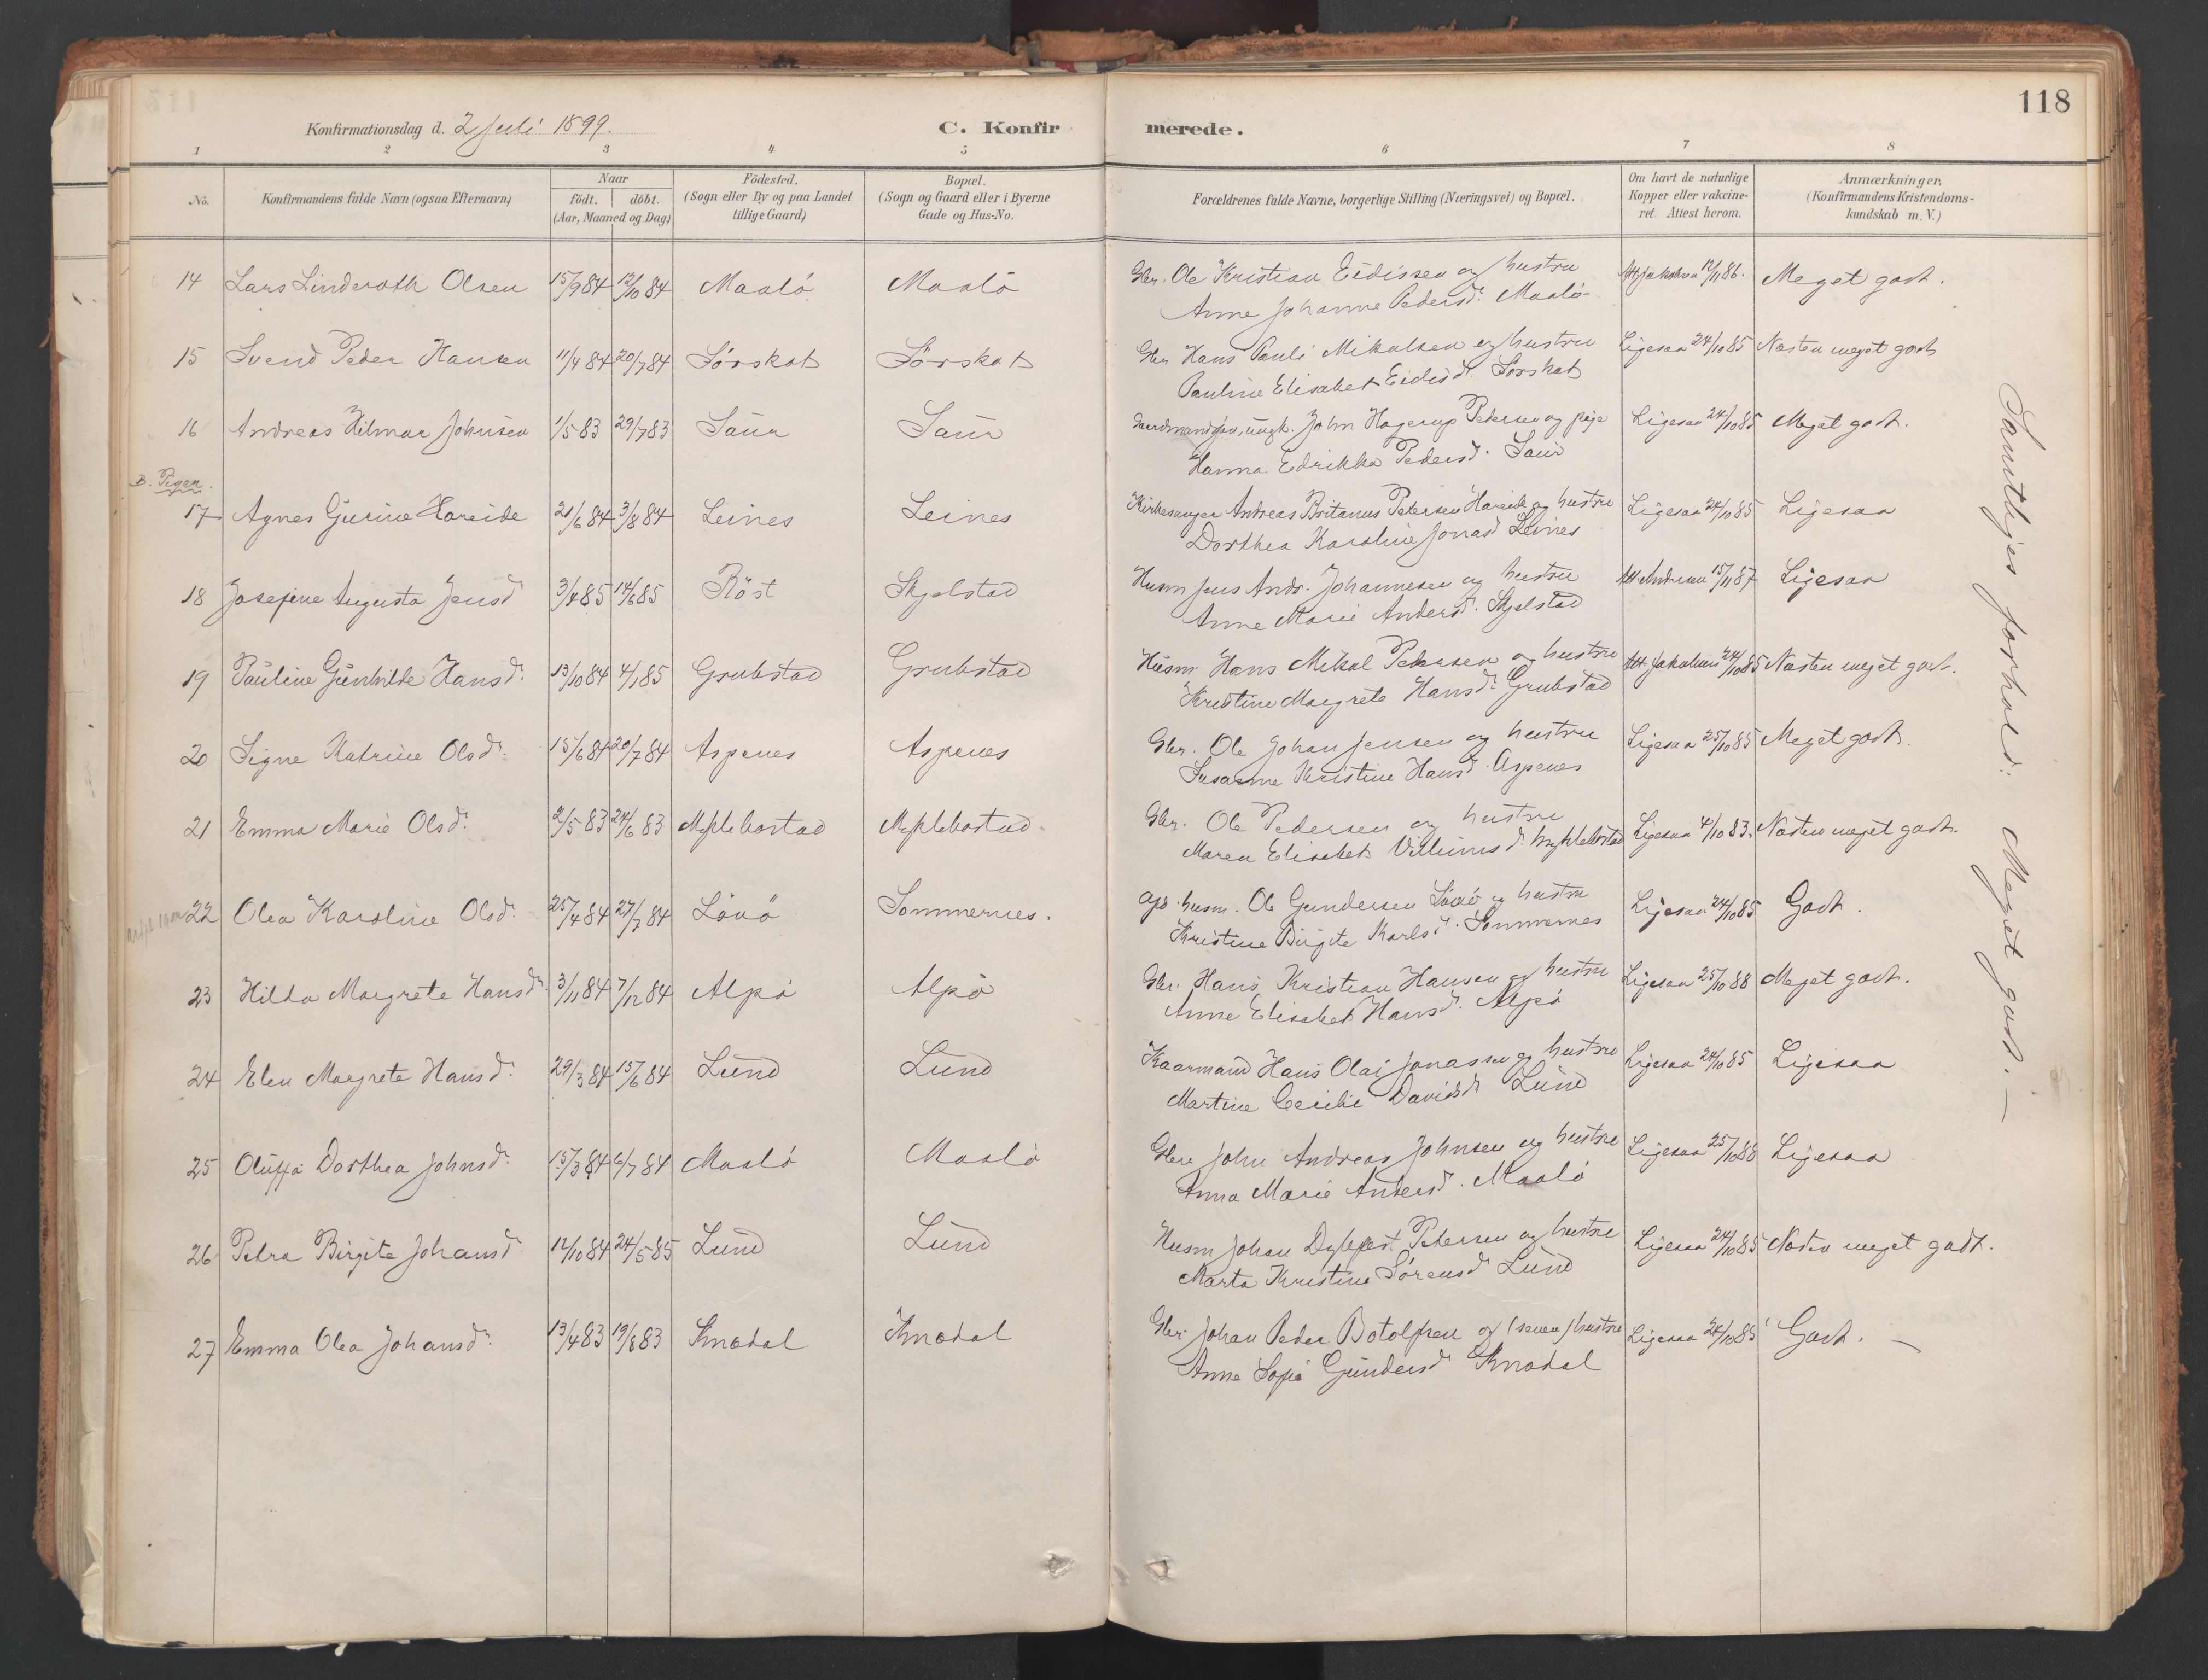 118
Konfirmationsdag d. 2 Juli 1899.
C. Konfir
merede.
1 2 3 4 5 6 7 8
No.
Konfirmandens fulde Navn (ogsaa Efternavn)
Naar
födt. döbt.
(Aar, Maaned og Dag)
Födested.
(Sogn eller By og paa Landet
tillige Gaard)
Bopæl.
(Sogn og Gaard eller i Byerne
Gade og Hus-No.
Forældrenes fulde Navne, borgerlige Stilling (Næringsvei) og Bopæl.
Om havt de naturlige
Kopper eller vakcine-
ret. Attest herom.
Anmærkninger,
(Konfirmandens Kristendoms-
kundskab m. V.)
14 Lars Linderoth Olsen 15/9 84 12/10 84 Maalö Maalö Gbr. Ole Kristian Eidissen og hustru 12/11 86. Meget godt.
Anne Johanne Pedersd. Maalö
15 Svend Peder Hansen 11/4 84 20/7 84 Sörskot Sörskot Gbr Hans Pauli Mikalsen og hustru Ligesaa 24/10 85 Næsten meget godt
Pauline Elisabet Eidisd. Sörskot
16 Andreas Hilmar Johnsen 1/5 83 29/7 83 Saur Saur ungk. John Hagerup Petersen og pige Ligesaa 24/10 85 Meget godt.
Hanna Edrikka Pedersd. Saur
B. Piger.
17 Agnes Gurine Hareide 21/6 84 3/8 84 Leines Leines Kirkesanger Andreas Britanus Petersen Hareide og hustru Ligesaa 24/10 85 Ligesaa
Dorthea Karoline Jonasd Leines
18 Josefine Augusta Jensd 3/4 85 14/6 85 Röst Skjelstad Husm Jens Andr. Johannesen og hustru Att Andresen 15/11 87 Ligesaa
Anne Marie Andersd. Skjelstad
19 Pauline Gunhilde Hansd. 13/10 84 4/1 85 Grubstad Grubstad Husm. Hans Mikal Pedersen og hustru Att Jakobsen 24/10 85 Næsten meget godt.
Kristine Margrete Hansd. Grubstad
20 Signe Katrine Olsd. 15/6 84 20/7 84 Aspenes Aspenes Gbr. Ole Johan Jensen og hustru Ligesaa 25/10 85 Meget godt.
Susanne Kristine Hansd. Aspenes
21 Emma Marie Olsd. 2/5 83 24/6 83 Myklebostad Myklebostad. Gbr. Ole Pedersen og hustru Ligesaa 4/10 83. Næsten meget godt.
Maren Elisabet Villumsd. Myklebostad
22 Olea Karoline Olsd. 25/4 84 27/7 84 Lövö Sommernes. husm. Ole Gundersen Lövö og hustru Ligesaa 24/10 85 Godt.
Kristine Birgite Karlsd. Sommernes
23 Hilda Margrete Hansd. 3/11 84 7/12 84 Alpö Alpö Gbr. Hans Kristian Hansen og hustru Ligesaa 25/10 88 Meget godt.
Anne Elisabet Hansd. Alpö
24 Elen Margrete Hansd. 29/3 84 15/6 84 Lund Lund Kaarmand Hans Olai Jonassen og hustru Ligesaa 24/10 85 Ligesaa
Martine Cecilie Davidsd Lund
25 Oluffa Dorthea Johnsd. 15/3 84 6/7 84 Maalö Maalö Gbr John Andreas Johnsen og hustru Ligesaa 25/10 88 Ligesaa
Anna Marie Andersd. Maalö
26 Petra Birgite Johansd. 12/10 84 24/5 85 Lund Lund Husm Johan Dybfest Petersen og hustru Ligesaa 24/10 85 Næsten meget godt.
Marta Kristine Sörensd Lund
27 Emma Olea Johansd. 13/4 83 19/8 83 Knædal Knædal Gbr. Johan Peder Botolfsen og hustru Ligesaa 24/10 85 Godt. —
Anne Sofie Gundersd Knædal
Samtliges forhold: Meget godt. —